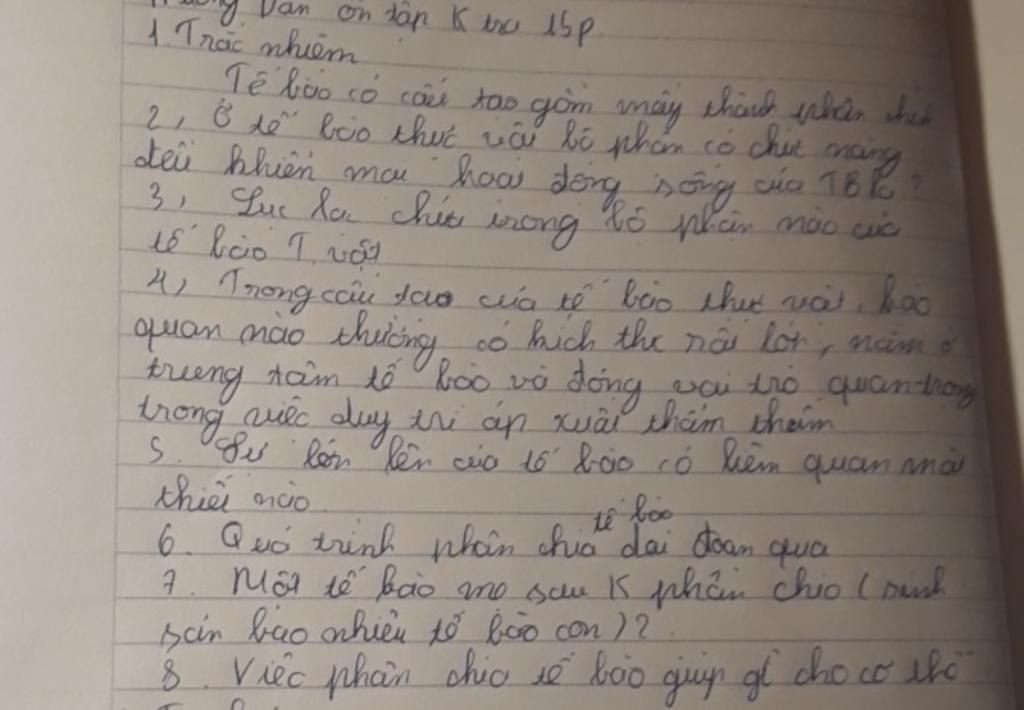 Dẫn ôn tập K tra 15p
1. Trắc nhiệm
Tế bào có cấu tạo gồm mấy thành phần
2, Ở tế bào thực vật bộ phận có chức năng
điều khiển mọi hoạt động sống của
3, Lục lạp chứa trong bộ phận nào của
tế bào T. vật
4, Trong cấu tạo của tế bào thực vật, bào
quan nào thường có kích thc rất lớn, nằm ở
trung tâm tế bào và đóng vai trò quan trọng
trong việc duy trì áp xuất thẩm thấu
5. Sự lớn lên của tế bào có liên quan mật
thiết nào
tế bào
6. Quá trình phân chia đoạn qua
7. Một tế bào mẹ sau K phân chia (sinh
sản bao nhiêu tế bào con)?
8. Việc phân chia tế bào giúp gì cho cơ thể